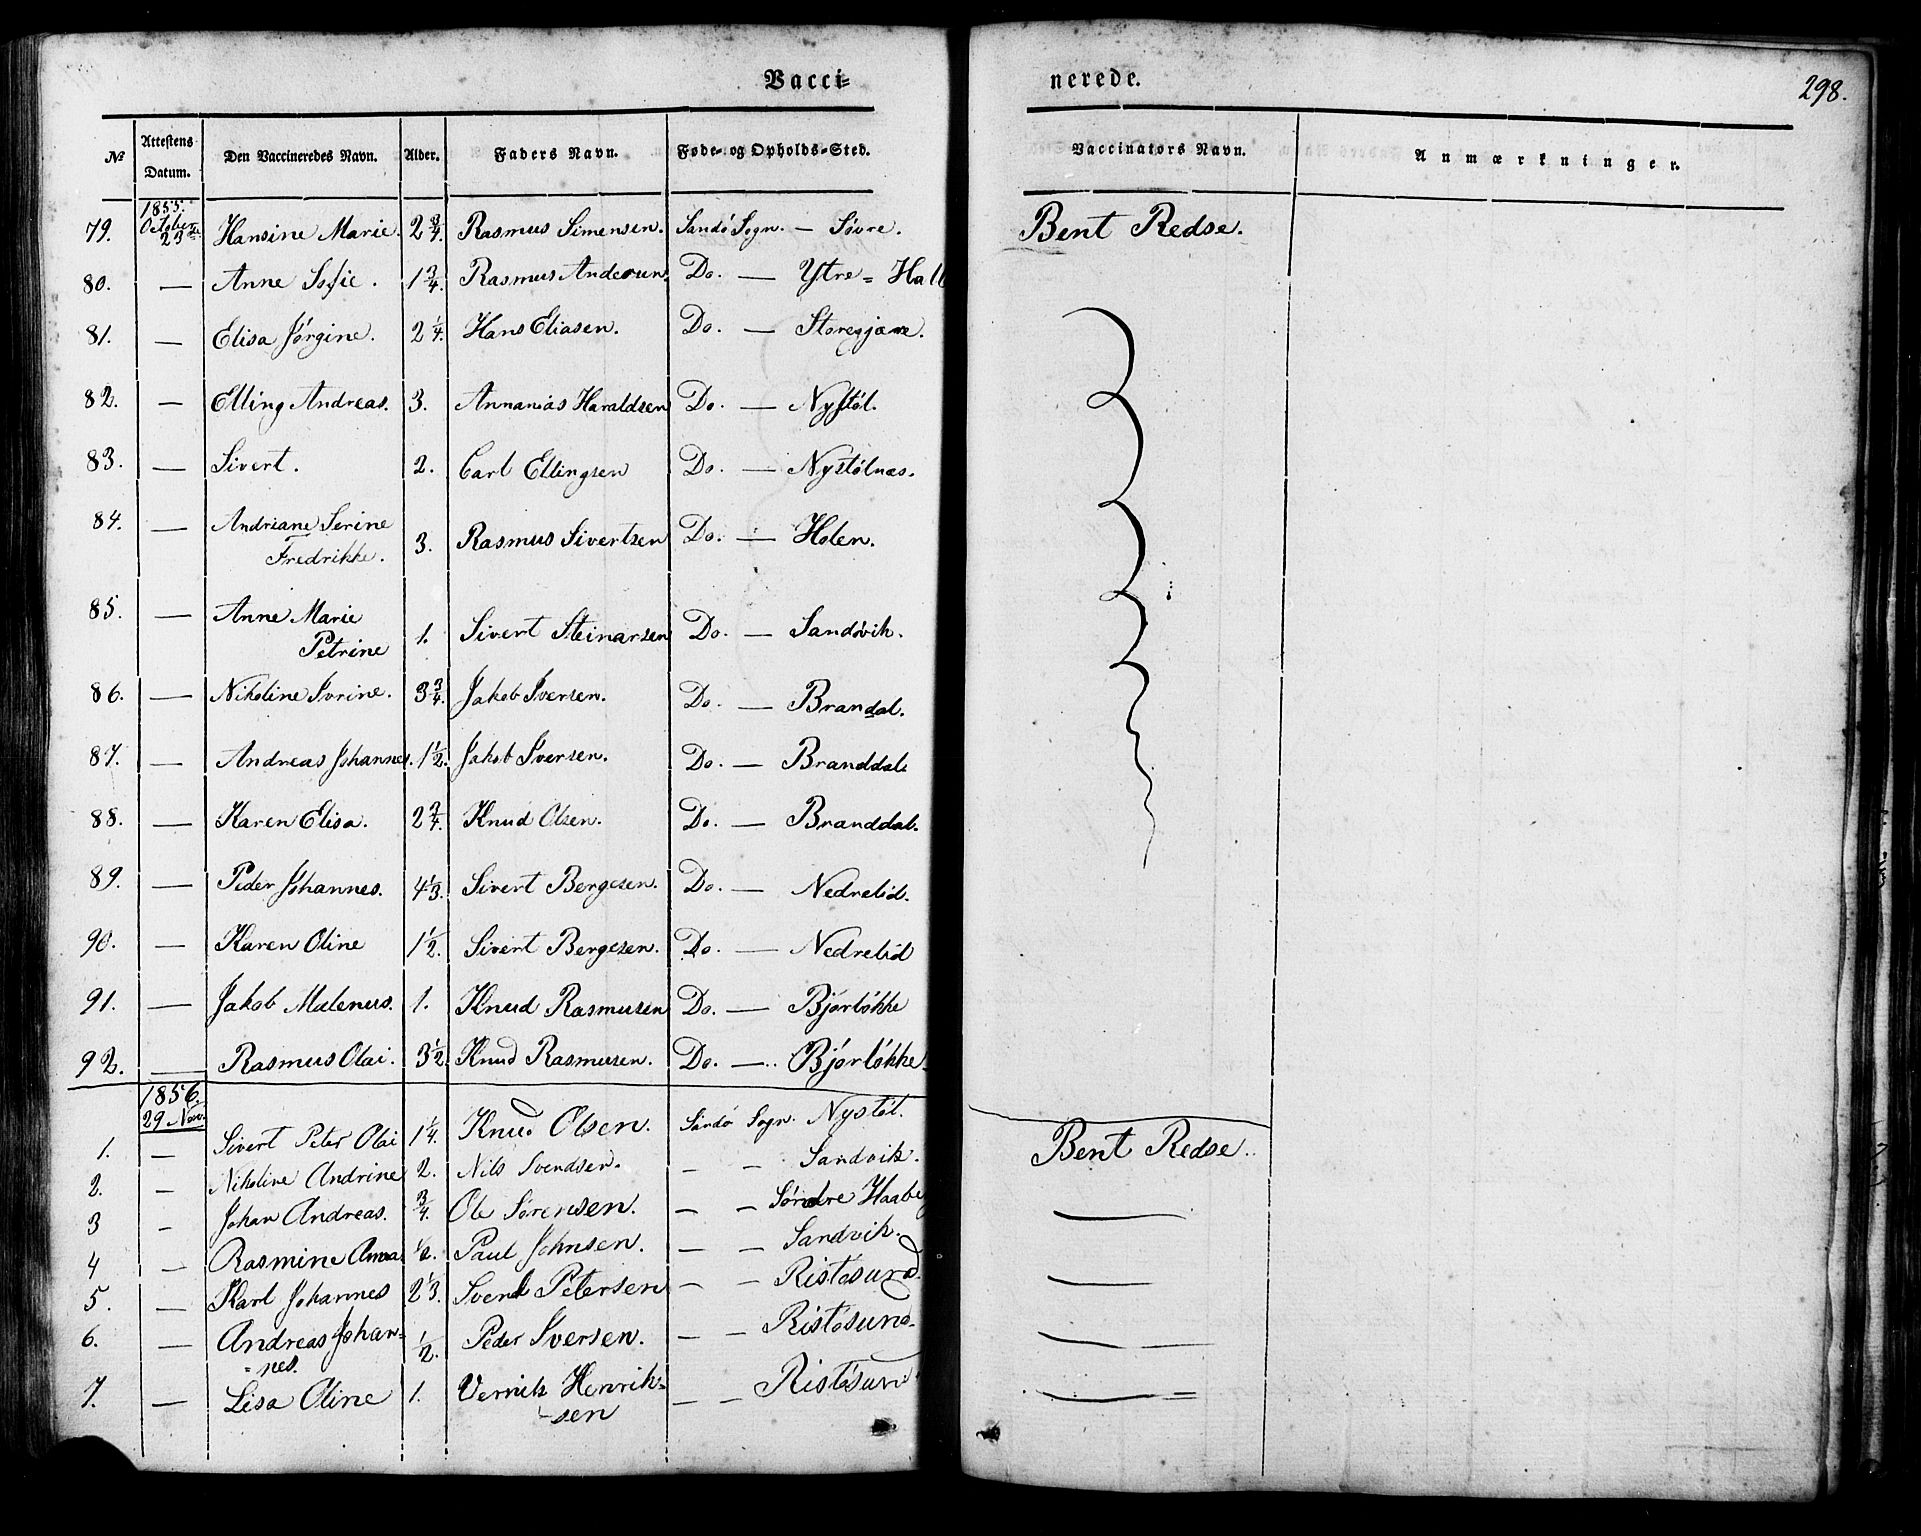 Vacci=
nerede.
298.
No
Attestens Datum.
Den Vaccineredes Navn.
Alder.
Faders Navn.
Føde- og Opholds-Sted.
Vaccinators Navn.
Anmærkninger.
1855.
79. October 23de Hansine Marie. 2 3/4. Rasmus Simensen. Sandö Sogn. — Søvre. Bent Redse.
80. — Anne Sofie. 1 3/4. Rasmus Andersen. Do. — Ytre=Hall
81. — Elisa Jørgine. 2 1/4. Hans Eliasen. Do. — Storegjære.
82. — Elling Andreas. 3. Annanias Haraldsen Do. — Nystøl.
83. — Sivert. 2. Carl Ellingsen Do. — Nystølnæs.
84. — Andriane Serine
Fredrikke. 3. Rasmus Sivertsen Do. — Holen.
85. — Anne Marie
Petrine 1. Sivert Steinarsen Do. — Sandövik.
86. — Nikoline Ivrine. 3 3/4. Jakob Iversen. Do. — Brandal.
87. — Andreas Johannes. 1 1/2. Jakob Iversen. Do. — Branddal.
88. — Karen Elisa. 2 3/4. Knud Olsen. Do. — Branddal.
89. — Peder Johannes. 4 1/3. Sivert Bergesen. Do. — Nedrelid.
90. — Karen Oline 1 1/2. Sivert Bergesen. Do. — Nedrelid
91. — Jakob Malenus. 1. Knud Rasmusen Do. — Bjørløkke
92. — Rasmus Olai. 3 1/2 Knud Rasmusen. Do. — Bjørløkke.
1856.
29 Nov.
1. — Sivert Peter Olai 1 1/4. Knud Olsen. Sandö Sogn. Nystøl. Bent Redse.
2. — Nikoline Andrine 2. Nils Svendsen. — — Sandvik.
3 — Johan Andreas. 3/4. Ole Sørensen. — — Søndre Haaberg
4 — Rasmine Anna 1/2. Paul Johnsen. — — Sandvik.
5. — Karl Johannes 2 1/3. Svend Petersen — — Ristesund.
6. — Andreas Johan=
=nes. 1/2. Peder Iversen. — — Ristøsund.
7. — Lisa Oline 1. Vernik Henrik=
-sen — — Ristøsund